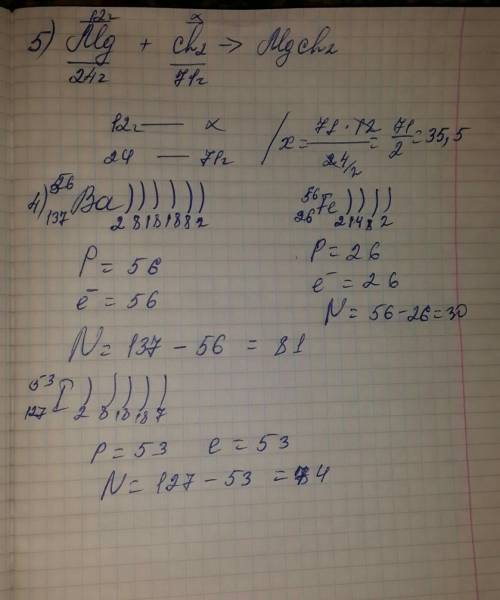 12г x
5) Mg + Ch2 → MgCh2
24г 71г
12г — x / x = 71 · 12 / 24/2 = 71/2 = 35,5
24 — 71г
4) 56 137 Ba ) ) ) ) ) ) 2 8 18 18 8 2
56 26 Fe ) ) ) ) 2 14 8 2
P = 56
e⁻ = 56
N = 137 - 56 = 81
P = 26
e⁻ = 26
N = 56 - 26 = 30
53 127 I ) ) ) ) ) 2 8 18 18 7
P = 53 e = 53
N = 127 - 53 = 84